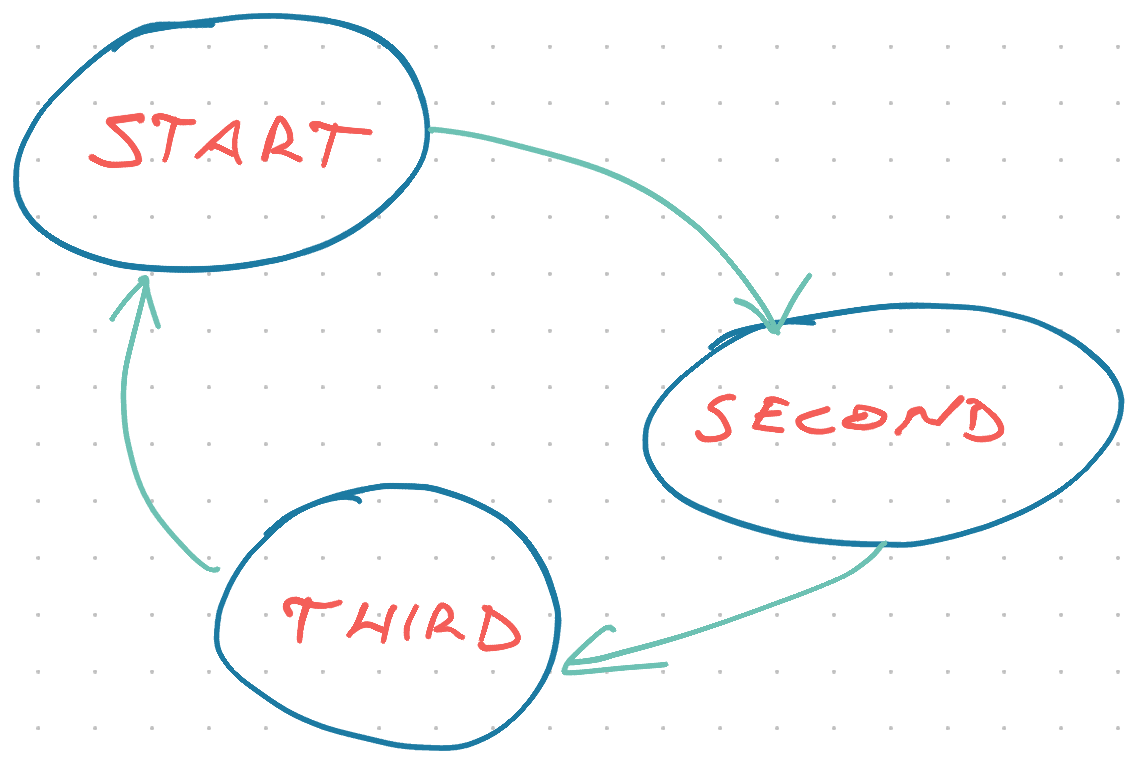 START
SECOND
THIRD